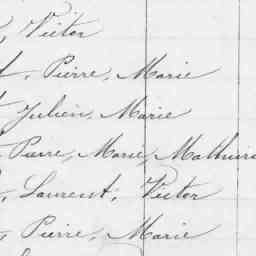 , Victor
, Pierre, Marie
Julien, Marie
, Pierre, Marie, Mathurin
, Laurent, Victor
, Pierre, Marie